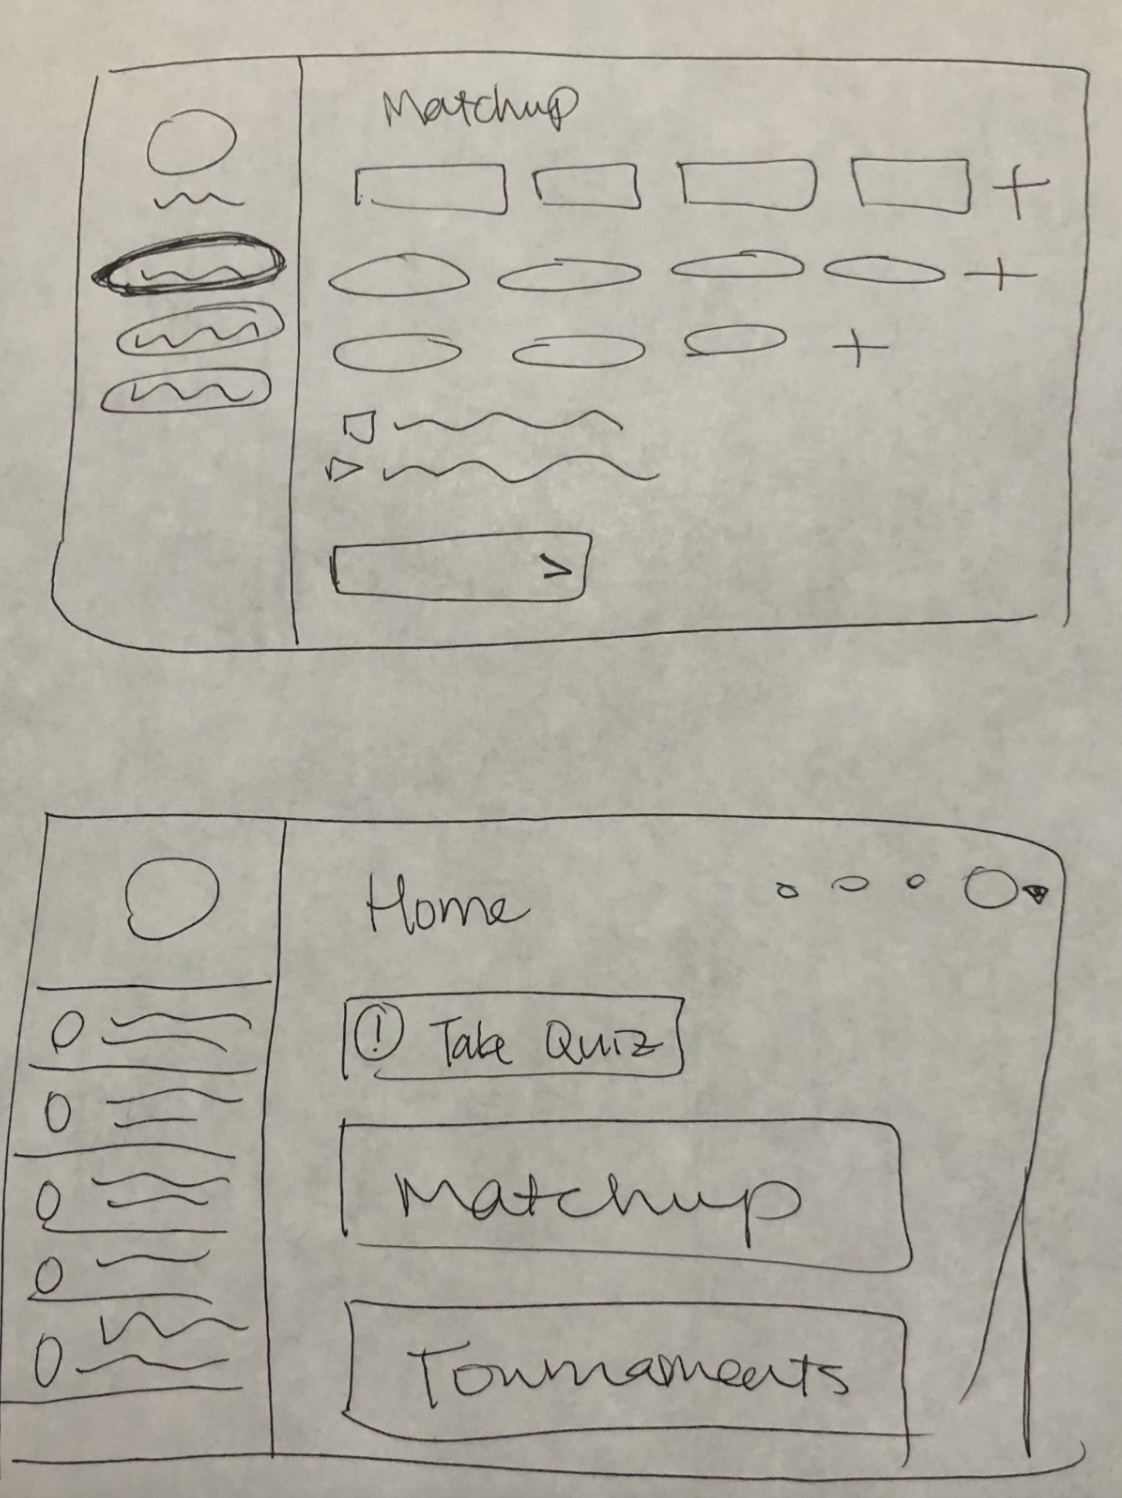 Matchup
Home
! Take Quiz
Matchup
Tournaments